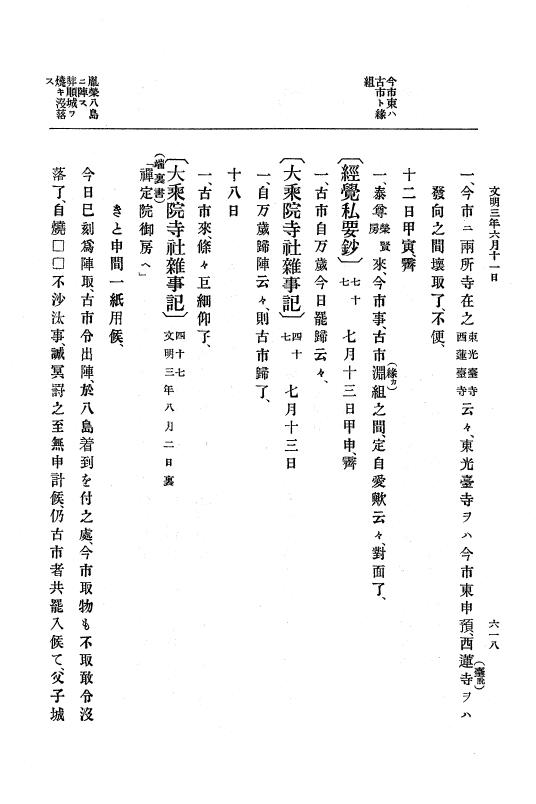 文明三年六月十一日
六一八
今市東ハ
古市ト緣
組
胤榮八島
ニ陣ス
順城ヲ
燒キ沒落
ス
一、今市ニ兩所寺在之東光臺寺西蓮臺寺云々、東光臺寺ヲハ今市東申預、西蓮(臺脫)寺ヲハ
發向之間壞取了、不便、
十二日甲寅、霽
一、泰尊榮賢房來、今市事古市淵(緣カ)組之間、定自愛歟云々、對面了、
〔經覺私要鈔〕七十七 七月十三日甲申、霽
一、古市自万歲今日罷歸云々、
〔大乘院寺社雜事記〕四十七 七月十三日
一、自万歲歸陣云々、則古市歸了、
十八日
一、古市來條々巨細仰了、
〔大乘院寺社雜事記〕四十七 文明三年八月二日裏
(端裏書)
「禪定院御房へ」
きと申間一紙用候、
今日巳刻爲陣取、古市令出陣、於八島着到を付之處、今市取物も不取敢令沒
落了、自燒□□不沙汰事、誠冥罸之至無申計候、仍古市者共罷入候て、父子城